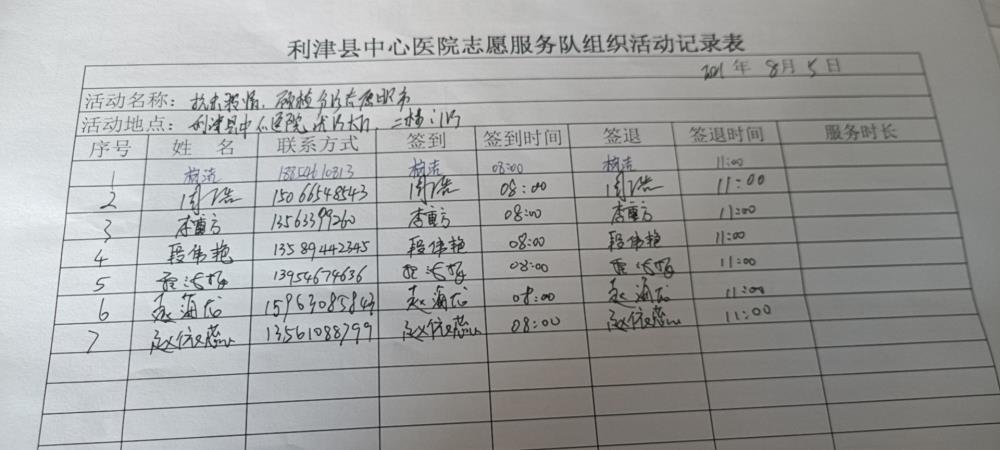 利津县中心医院志愿服务队组织活动记录表
2021 年 8 月 5 日
活动名称：抗击疫情，预检分诊志愿服务
活动地点：利津县中心医院 门诊大厅，二楼门诊
序号 姓 名 联系方式 签到 签到时间 签退 签退时间 服务时长
1 08:00 11:00
2 周浩 15066548543 周浩 08:00 周浩 11:00
3 李重方 13563399260 李重方 08:00 李重方 11:00
4 段伟艳 13589442345 段伟艳 08:00 段伟艳 11:00
5 13954674636 08:00 11:00
6 赵海龙 15963085843 赵海龙 08:00 赵海龙 11:00
7 赵依蕊 13561088799 赵依蕊 08:00 赵依蕊 11:00